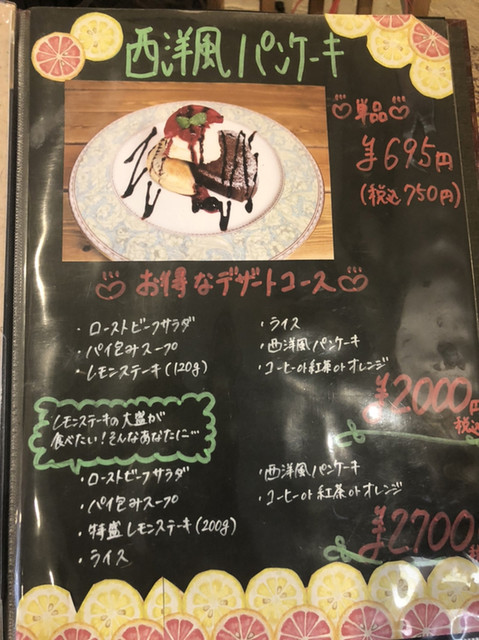 西洋風パンケーキ
単品
¥695円
(税込750円)
お得なデザートコース
・ローストビーフサラダ
・パイ包みスープ
・レモンステーキ(120g)
・ライス
・西洋風パンケーキ
・コーヒーor紅茶orオレンジ
¥2000円
税込
レモンステーキの大盛が
食べたい!そんなあなたに…
・ローストビーフサラダ
・パイ包みスープ
・特盛レモンステーキ(200g)
・ライス
・西洋風パンケーキ
・コーヒーor紅茶orオレンジ
¥2700
税